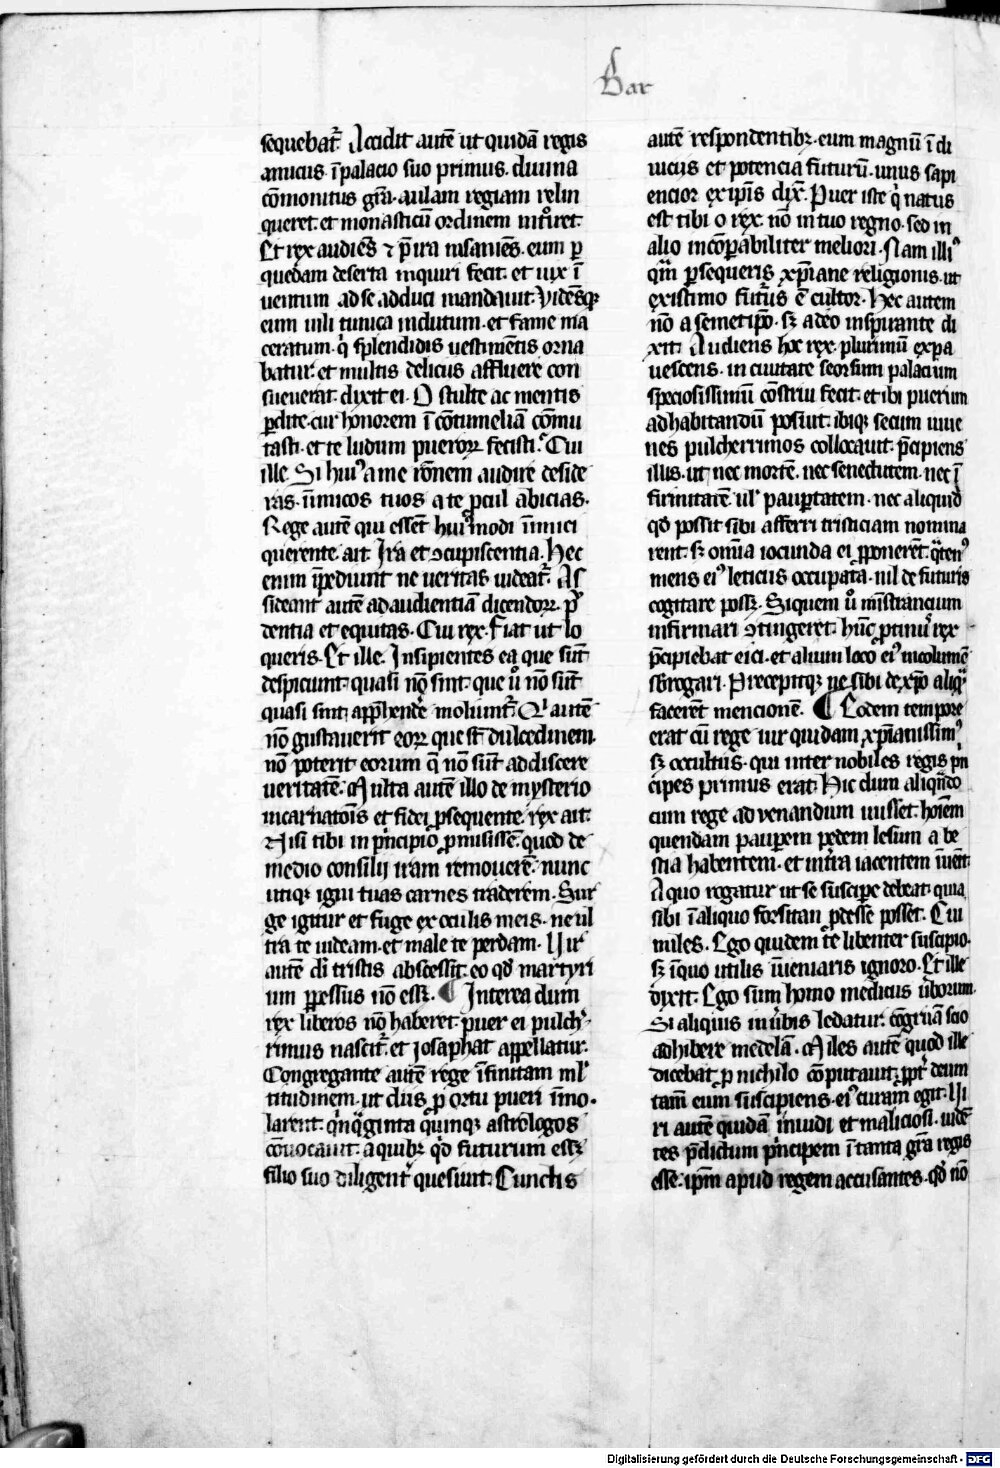 Bar
sequebat᷑. Accidit autē ut quidā regis
amicus. ī palacio suo primus. diuina
cōmonitus gr̄a. aulam regiam relin
queret. et monasticū ordinem intͦret.
Et rex audiēs ⁊ p̄ ira insaniēs. eum ꝑ
quedam deserta inquiri fecit. et uix ī
uentum ad se adduci mandauit. Vidēsqꝫ
eum uili tunica indutum. et fame ma
ceratum. qͥ splendidis uestimētis orna
batur. et multis deliciis affluere con
sueuerat. dixit ei. O stulte ac mentis
ꝑdite. cur honorem ī cōtumeliā cōmu
tasti. et te ludum pueroꝝ fecisti. Cui
ille. Si huiꝰ a me rōnem audire deside
ras. inimicos tuos a te ꝓcul abicias.
Rege autē qui essēt huiꝰmodi īimici
querente. ait. Ira et ꝯcupiscentia. Hec
enim īpediunt ne ueritas uideat᷑. As
sideant autē ad audientiā dicendoꝝ. pͮ
dentia et equitas. Cui rex. Fiat ut lo
queris. Et ille. Insipientes ea que sūt
despiciunt. quasi nō sint. que uͦ nō sūt
quasi sint app̄hende᷑ moliunt᷑. Qͥ autē
nō gustauerit eoꝝ que st̄ dulcedinem.
nō poterit eorum q̄ nō sūt addiscere
ueritatē. Multa autē illo de mysterio
incarnatōis et fidei ꝓsequente. rex ait.
Nisi tibi in pͥncipio ꝓmisissē. quod de
medio consilij iram remouerē. nunc
utiqꝫ igni tuas carnes traderem. Sur
ge igitur et fuge ex oculis meis. ne ul
tra te uideam. et male te perdam. Uir
autē di᷑ tristis abscessit. eo qd̄ martyri
um ꝑpessus nō esset. ¶ Interea dum
rex liberos nō haberet. puer ei pulch᷑
rimus nascit᷑. et Josaphat appellatur.
Congregante autē rege īfinitam ml᷑
titudinem. ut diis ꝓ ortu pueri īmo.
larent. qͥnqͣginta quinqꝫ astrologos
cōuocauit. a quibꝫ qͥd futurum esset
filio suo diligent᷑ quesiuit. Cunctis
autē respondentibꝫ. eum magnū ī di
uiciis et potencia futurū. unus sapi
encior ex ip̄is dix̄. Puer iste qͥ natus
est tibi o rex. nō in tuo regno. sed in
alio incōꝑabiliter meliori. Nam illiꝰ
qͣm ꝑsequeris xp̄iane religionis. ut
existimo futurꝰ ē cultor. Hec autem
nō a semetip̄o. sꝫ a deo inspirante di
xit. Audiens hoc rex. plurimū expa
uescens. in ciuitate seorsum palacium
speciosissimū cōstrui fecit. et ibi puerum
ad habitandū posuit. ibiqꝫ secum iuue
nes pulcherrimos collocauit. p̄cipiens
illis. ut nec mortē. nec senectutem. nec ī
firmitatē. ul᷑ pauꝑtatem. nec aliquid
qd̄ possit sibi afferri tristiciam nomina
rent. sꝫ omia iocunda ei ꝓponerēt. qͣtenꝰ
mens eiꝰ leticiis occupata. nil de futuris
cogitare posset. Si quem uͦ ministrancium
infirmari ꝯtingeret. hūc ꝓtinus rex
p̄cipiebat eici. et alium loco eiꝰ incolumē
sbrogari. Precepitqꝫ ne sibi de xp̄o aliqͣ᷑
facerēt mencionē. ¶ Eodem tempore
erat cū rege uir quidam xp̄ianissimꝰ
sꝫ occultus. qui inter nobiles regis pn
cipes primus erat. Hic dum aliqn̄do
cum rege ad venandum iuisset. hoīem
quendam pauꝑem pedem lesum a be
stia habentem. et in tr̄a iacentem īuēit.
A quo rogatur ut se suscipe debeat. quia
sibi ī aliquo forsitan ꝓdesse posset. Cui
miles. Ego quidem te libenter suscipio.
sꝫ ī quo utilis īueniaris ignoro. Et ille
dixit. Ego sum homo medicus ūborum.
Si aliquis in ūbis ledatur. cōgruā scio
adhibere medelā. Miles autē quod ille
dicebat ꝓ nichilo cōputauit. ꝓpt᷑ deum
tam̄ eum suscipiens. eiꝰ curam egit. Ui
ri autē quidā inuidi et maliciosi. uidē
tes p̄dictum pͥncipem ī tanta gr̄a regis
esse. ip̄m apud regem accusantes. qd̄ nō
Digitalisierung gefördert durch die Deutsche Forschungsgemeinschaft - DFG